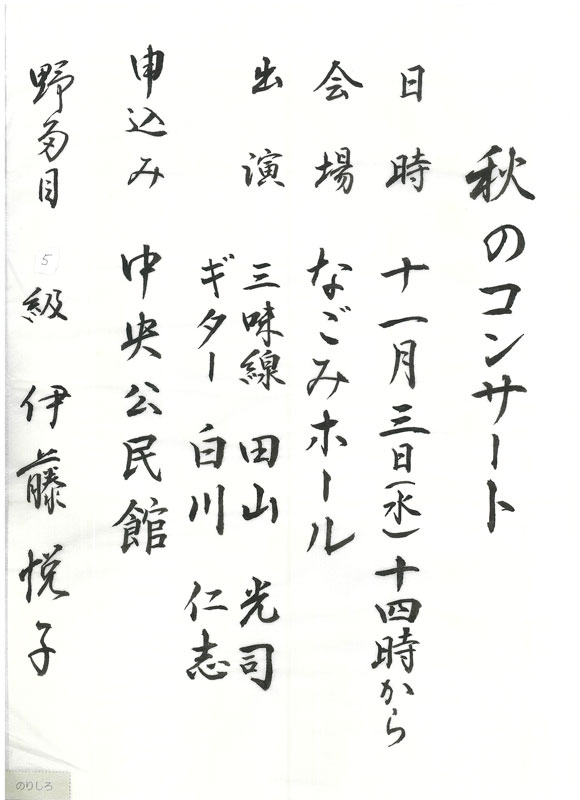 秋のコンサート
日時 十一月三日(水)十四時から
会場 なごみホール
出演 三味線 田山 光司
ギター 白川 仁志
申込み 中央公民館
野菊目 5 級 伊藤 悦子
のりしろ